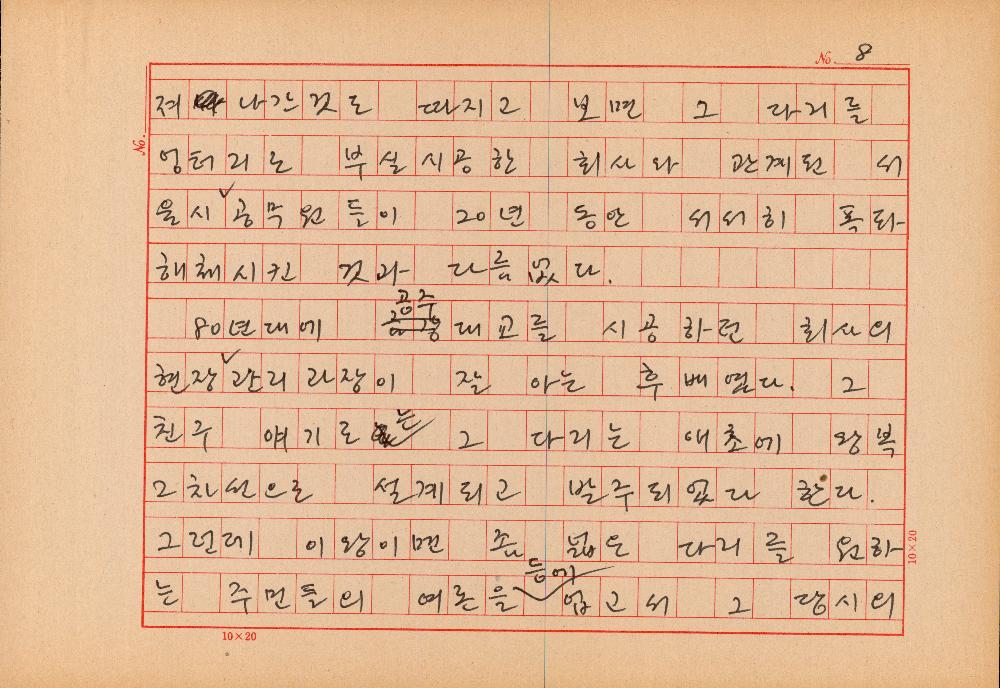 No. 8
No.
져 나간 것도 따지고 보면 그 다리를
엉터리로 부실 시공한 회사와 관계된 서
울시 공무원들이 20년 동안 서서히 폭파
해체시킨 것과 다름없다.
80년대에 공주대교를 시공하던 회사의
현장 관리 과장이 잘 아는 후배였다. 그
친구 얘기로는 그 다리는 애초에 왕복
2차선으로 설계되고 발주되었다 한다.
그런데 이왕이면 좀 넓은 다리를 원하
는 주민들의 여론을 등에 업고서 그 당시의
10×20
10×20